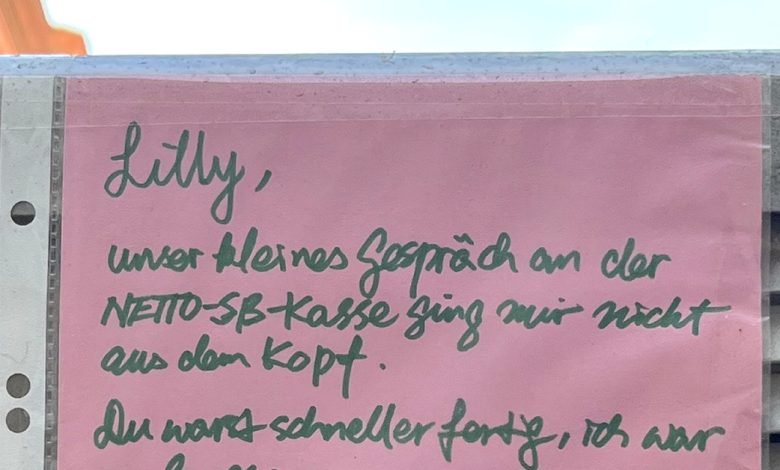 Lilly,
unser kleines Gespräch an der
NETTO-SB-Kasse ging mir nicht
aus dem Kopf.
Du warst schneller fertig, ich war